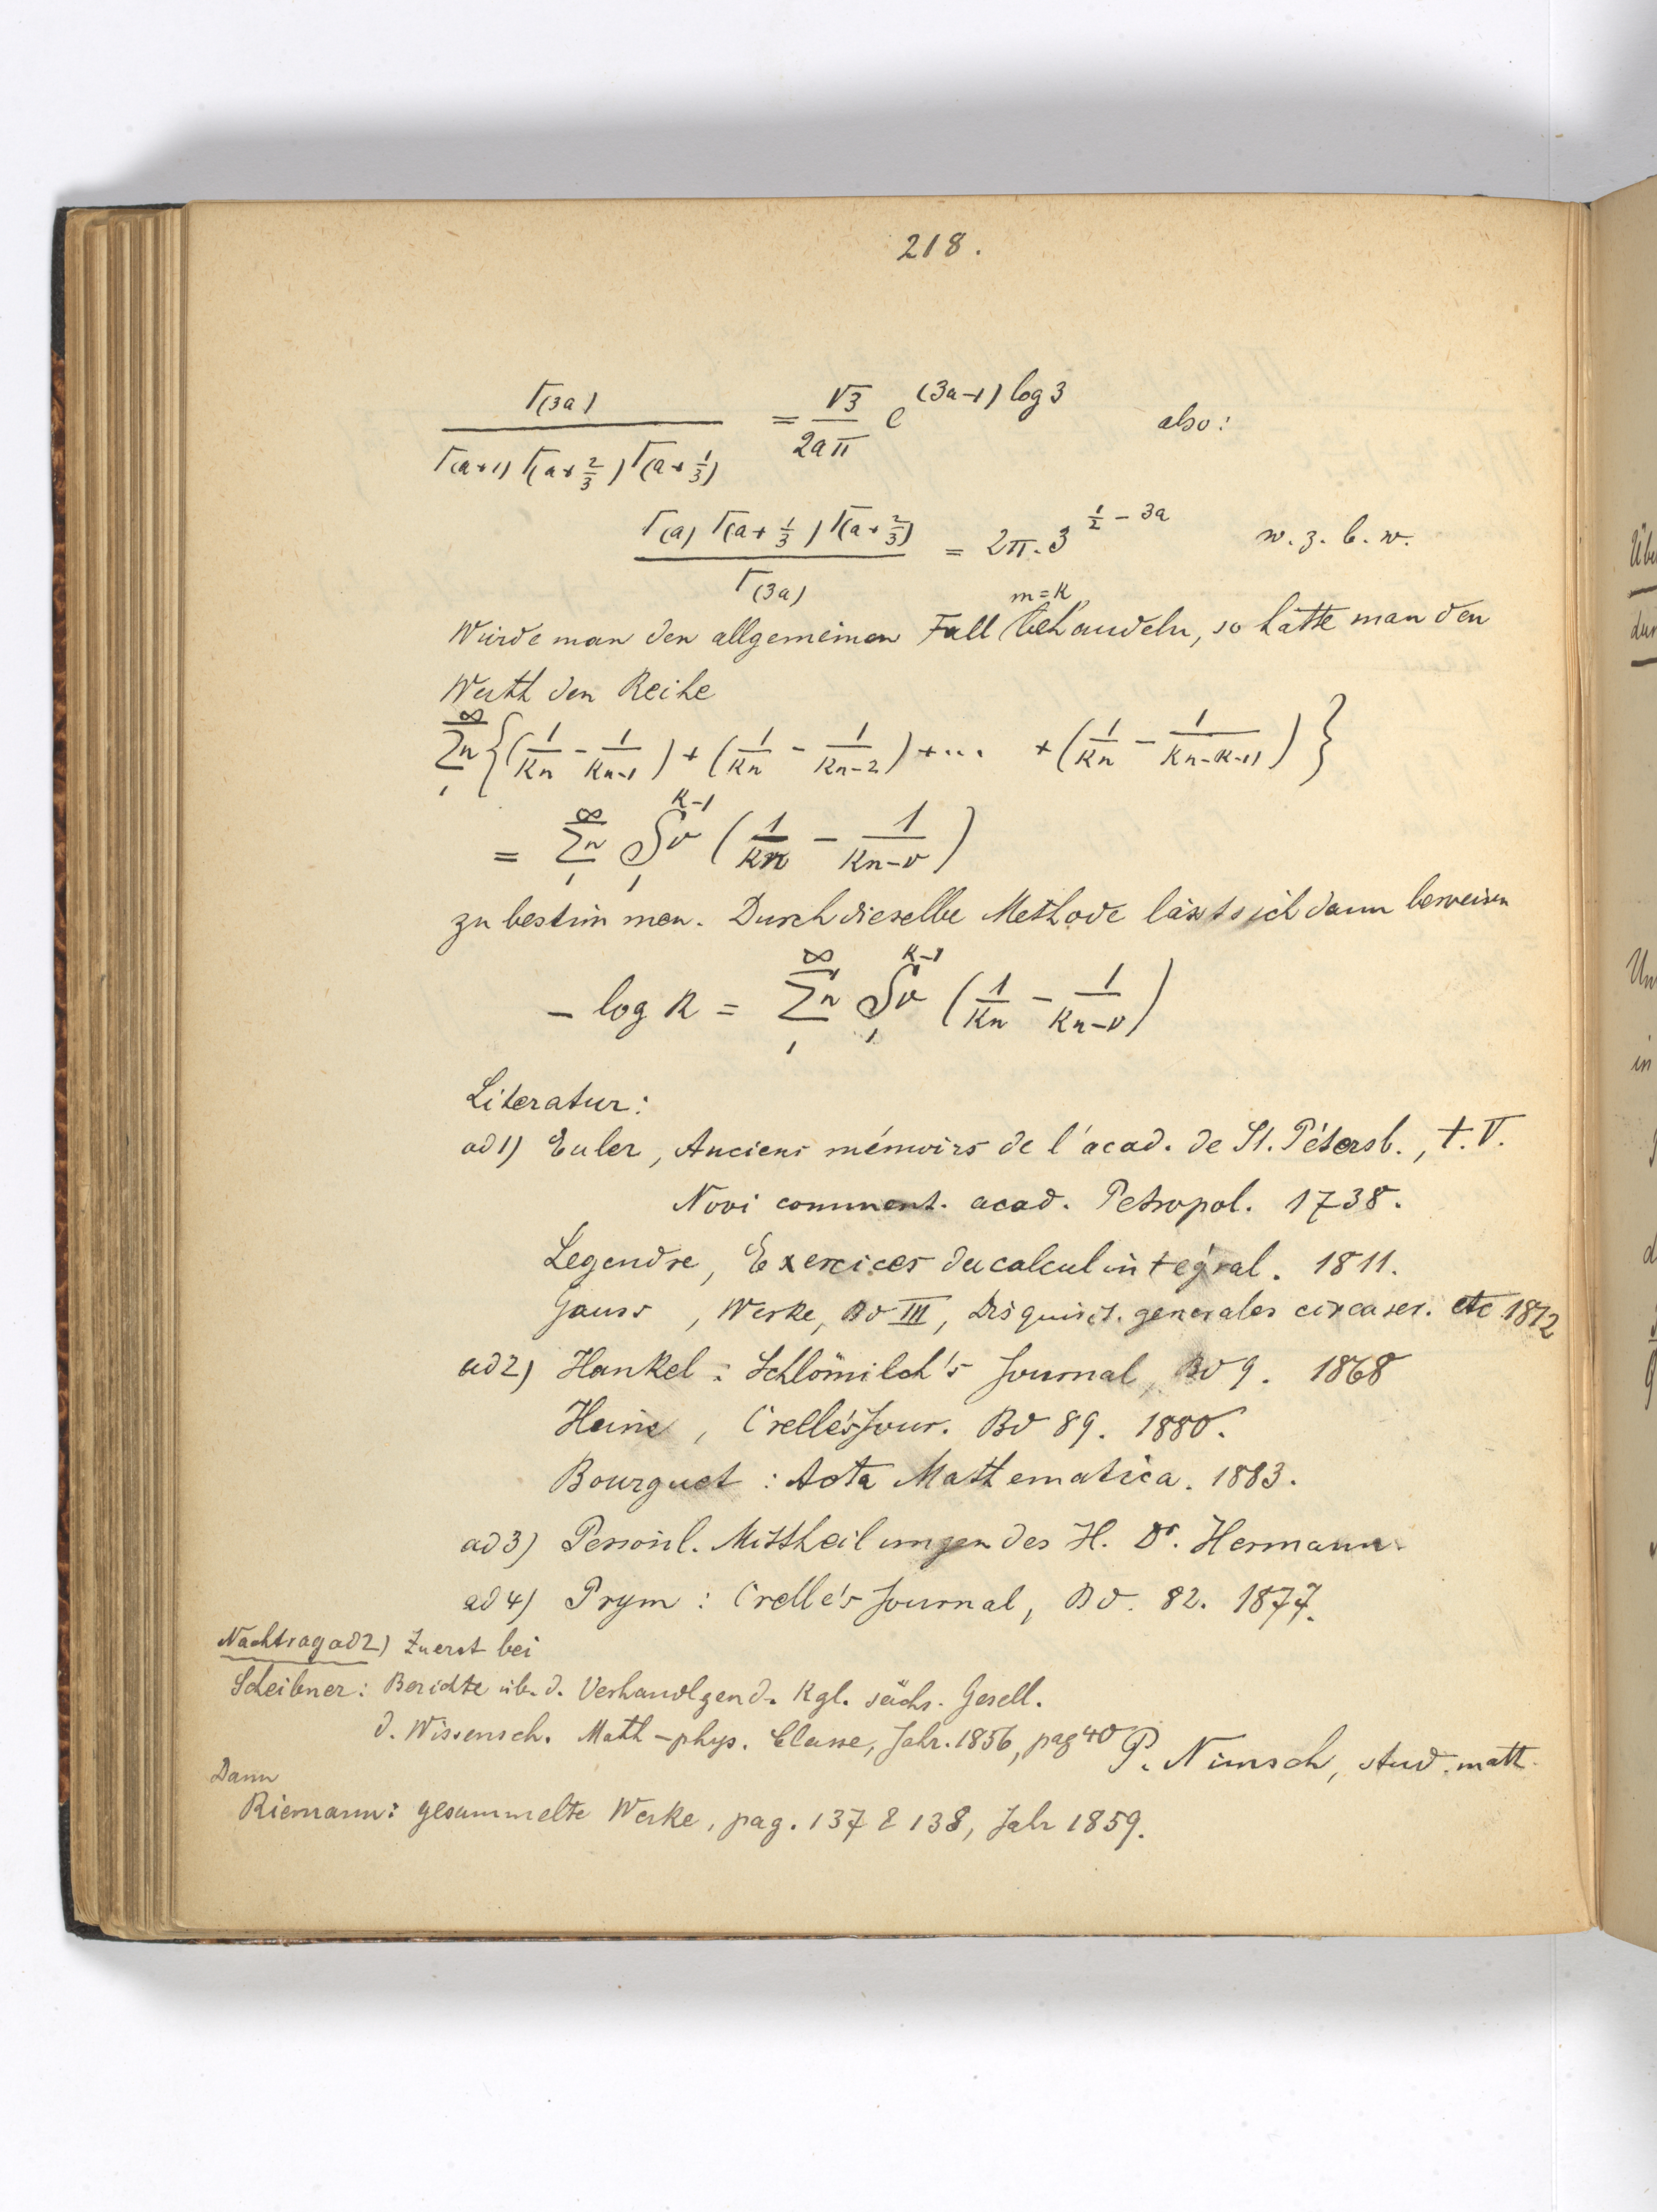 218.
Γ(3a) / Γ(a+1) Γ(a+2/3) Γ(a+1/3) = √3/2aπ e^(3a-1) log 3 also:
Γ(a) Γ(a+1/3) Γ(a+2/3) / Γ(3a) = 2π. 3^1/2 - 3a w. z. b. w.
m=k
Würde man den allgemeinen Fall behandeln, so hätte man den
Werth der Reihe
∞Σn1 {(1/kn - 1/kn-1) + (1/kn - 1/kn-2) + ... + (1/kn - 1/kn-k-1)}
= ∞Σn1 k-1Sν1 (1/kn - 1/kn-ν)
zu bestimmen. Durch dieselbe Methode lässt sich dann beweisen
- log k = ∞Σn1 k-1Sν1 (1/kn - 1/kn-ν)
Literatur:
ad 1) Euler, Anciens mémoirs de l'acad. de St. Pétersb., t. V.
Novi comment. acad. Petropol. 1738.
Legendre, Exercices du calcul intégral. 1811.
Gauss, Werke, Bd III, Disquisit. generales circa ser. etc 1812
ad 2) Hankel: Schlömilch's Journal, Bd 9. 1868
Heine, Crelle's Jour. Bd 89. 1880.
Bourguet: Acta Mathematica. 1883.
ad 3) Persönl. Mittheilungen des H. Dr. Hermann.
ad 4) Prym: Crelle's Journal, Bd. 82. 1877.
Nachtrag ad 2) Zuerst bei
Scheibner: Berichte üb. d. Verhandlgen d. Kgl. sächs. Gesell.
d. Wissensch. Math-phys. Classe, Jahr. 1856, pag 40
P. Nimsch, stud. math.
Dann
Riemann: gesammelte Werke, pag. 137 & 138, Jahr 1859.